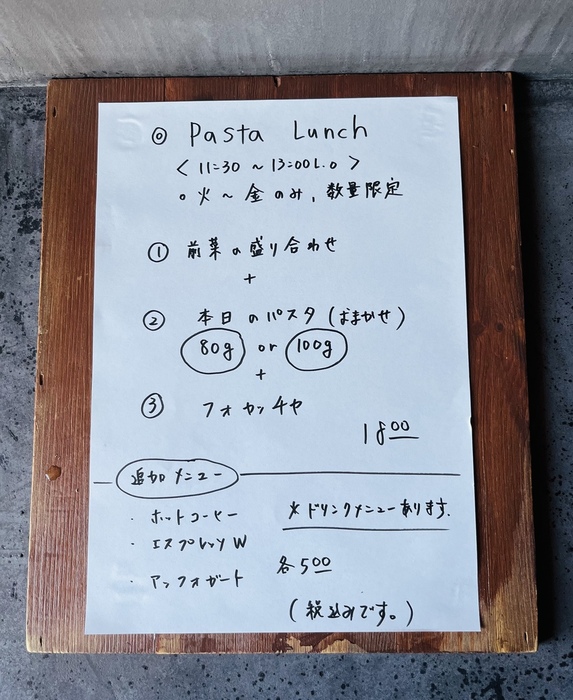 ◎ Pasta Lunch
< 11:30 ~ 13:00 L.O >
○ 火 ~ 金 のみ, 数量限定
① 前菜の盛り合わせ
+
② 本日のパスタ (おまかせ)
80g or 100g
+
③ フォカッチャ
1800
追加メニュー
・ホットコーヒー
※ドリンクメニューあります.
・エスプレッソ W
各500
・アッフォガート
(税込みです。)